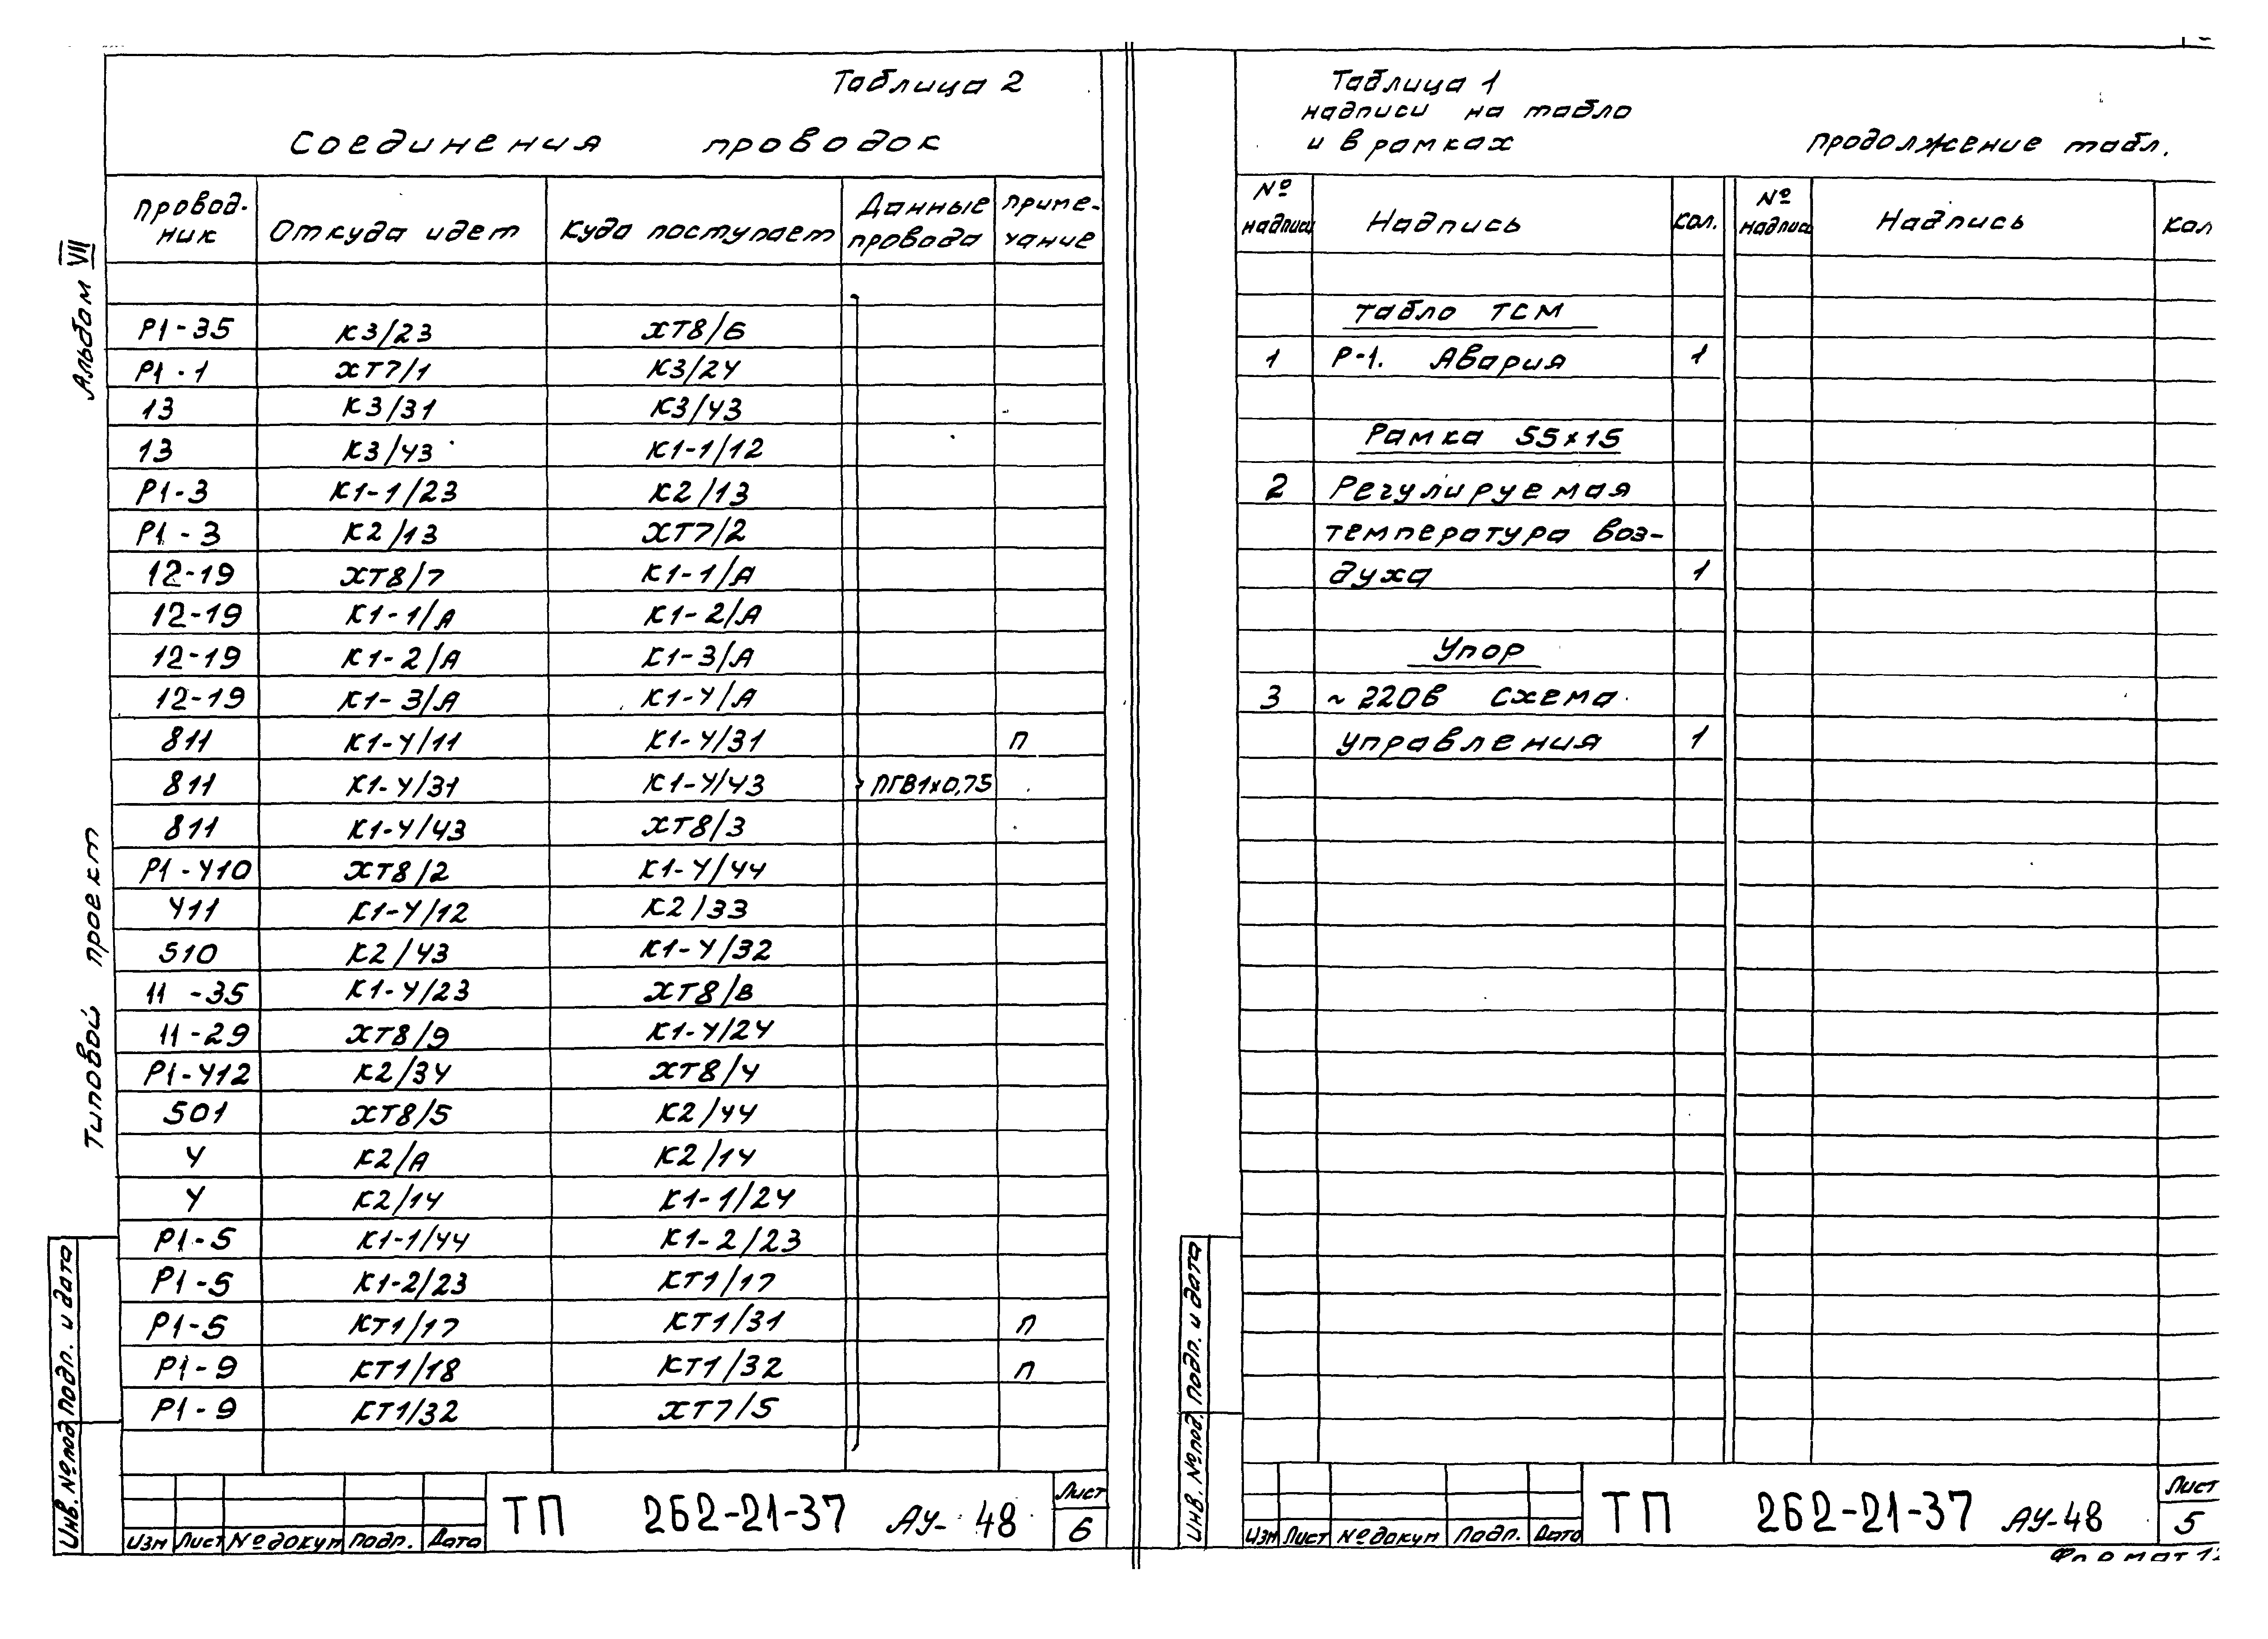 Таблица 2
Соединения проводок
Провод-ник | Откуда идет | Куда поступает | Данные провода | Приме-чание
Р1-35 | К3/23 | ХТ8/6
Р1-1 | ХТ7/1 | К3/24
13 | К3/31 | К3/43
13 | К3/43 | К1-1/12
Р1-3 | К1-1/23 | К2/13
Р1-3 | К2/13 | ХТ7/2
12-19 | ХТ8/7 | К1-1/А
12-19 | К1-1/А | К1-2/А
12-19 | К1-2/А | К1-3/А
12-19 | К1-3/А | К1-4/А
811 | К1-4/11 | К1-4/31 | п
811 | К1-4/31 | К1-4/43 | ПГВ1х0,75
811 | К1-4/43 | ХТ8/3
Р1-410 | ХТ8/2 | К1-4/44
411 | К1-4/12 | К2/33
510 | К2/43 | К1-4/32
11-35 | К1-4/23 | ХТ8/8
11-29 | ХТ8/9 | К1-4/24
Р1-412 | К2/34 | ХТ8/4
501 | ХТ8/5 | К2/44
4 | К2/А | К2/14
4 | К2/14 | К1-1/24
Р1-5 | К1-1/44 | К1-2/23
Р1-5 | К1-2/23 | КТ1/17
Р1-5 | КТ1/17 | КТ1/31 | п
Р1-9 | КТ1/18 | КТ1/32 | п
Р1-9 | КТ1/32 | ХТ7/5
Изм Лист № докум Подп. Дата
ТП 262-21-37 АУ-48
Лист
6
Альбом VII
Типовой проект
Инв. № под. Подп. и дата
Таблица 1
надписи на табло
и в рамках
продолжение табл.
№ надписи | Надпись | кол. | № надписи | Надпись | кол
Табло ТСМ
1 | Р-1. Авария | 1
Рамка 55х15
2 | Регулируемая
температура воз-
духа | 1
Упор
3 | ~220в схема
управления | 1
Изм Лист № докум Подп. Дата
ТП 262-21-37 АУ-48
Лист
5
Инв. № под. Подп. и дата